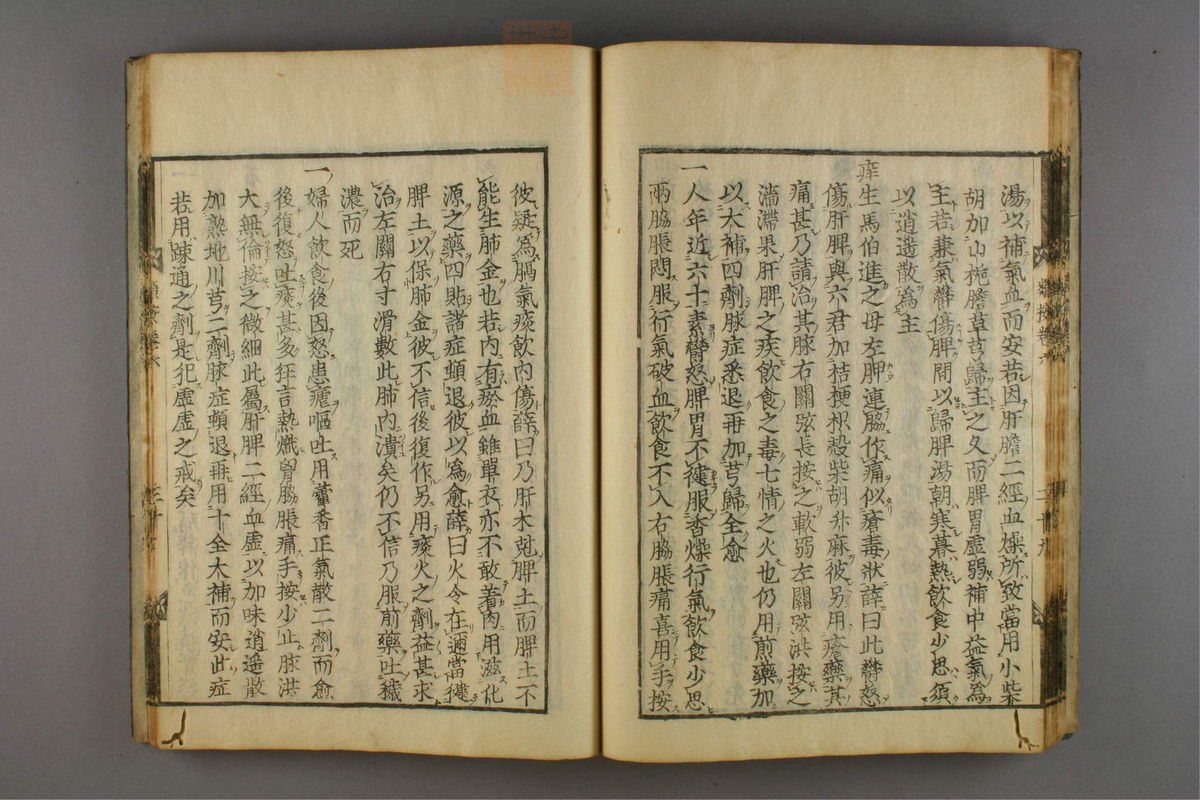 湯以補氣血而安若因肝膽二經血燥所致當用小柴
胡加山梔膽草芎歸主之久而脾胃虛弱補中益氣為
主若兼氣欝傷脾間以歸脾湯朝寒暮熱飲食少思須
以逍遙散為主
庠生馬伯進之母左胛連脇作痛似瘡毒狀薛曰此欝怒
傷肝脾與六君加桔梗枳殻柴胡升麻彼另用瘡藥其
痛甚乃請治其脉右關弦長按之軟弱左關弦洪按之
濇滯果肝脾之疾飲食之毒七情之火也仍用前藥加
以大補四劑脉症悉退再加芎歸全愈
一人年近六十素欝怒脾胃不健服香燥行氣飲食少思
兩脇脹悶服行氣破血飲食不入右脇脹痛喜用手按
彼疑為膈氣痰飲內傷薛曰乃肝木尅脾土而脾土不
能生肺金也若內有瘀血雖單衣亦不敢著肉用滋化
源之藥四貼諸症頓退彼以為愈薛曰火令在邇當健
脾土以保肺金彼不信後復作另用痰火之劑益甚求
治左關右寸滑數此肺內潰矣仍不信乃服前藥吐穢
濃而死
一婦人飲食後因怒患瘧嘔吐用藿香正氣散二劑而愈
後復怒吐痰甚多狂言熱熾胷脇脹痛手按少止脉洪
大無倫按之微細此屬肝脾二經血虛以加味逍遙散
加熟地川芎二劑脉症頓退再用十全大補而安此症
若用踈通之劑是犯虛虛之戒矣